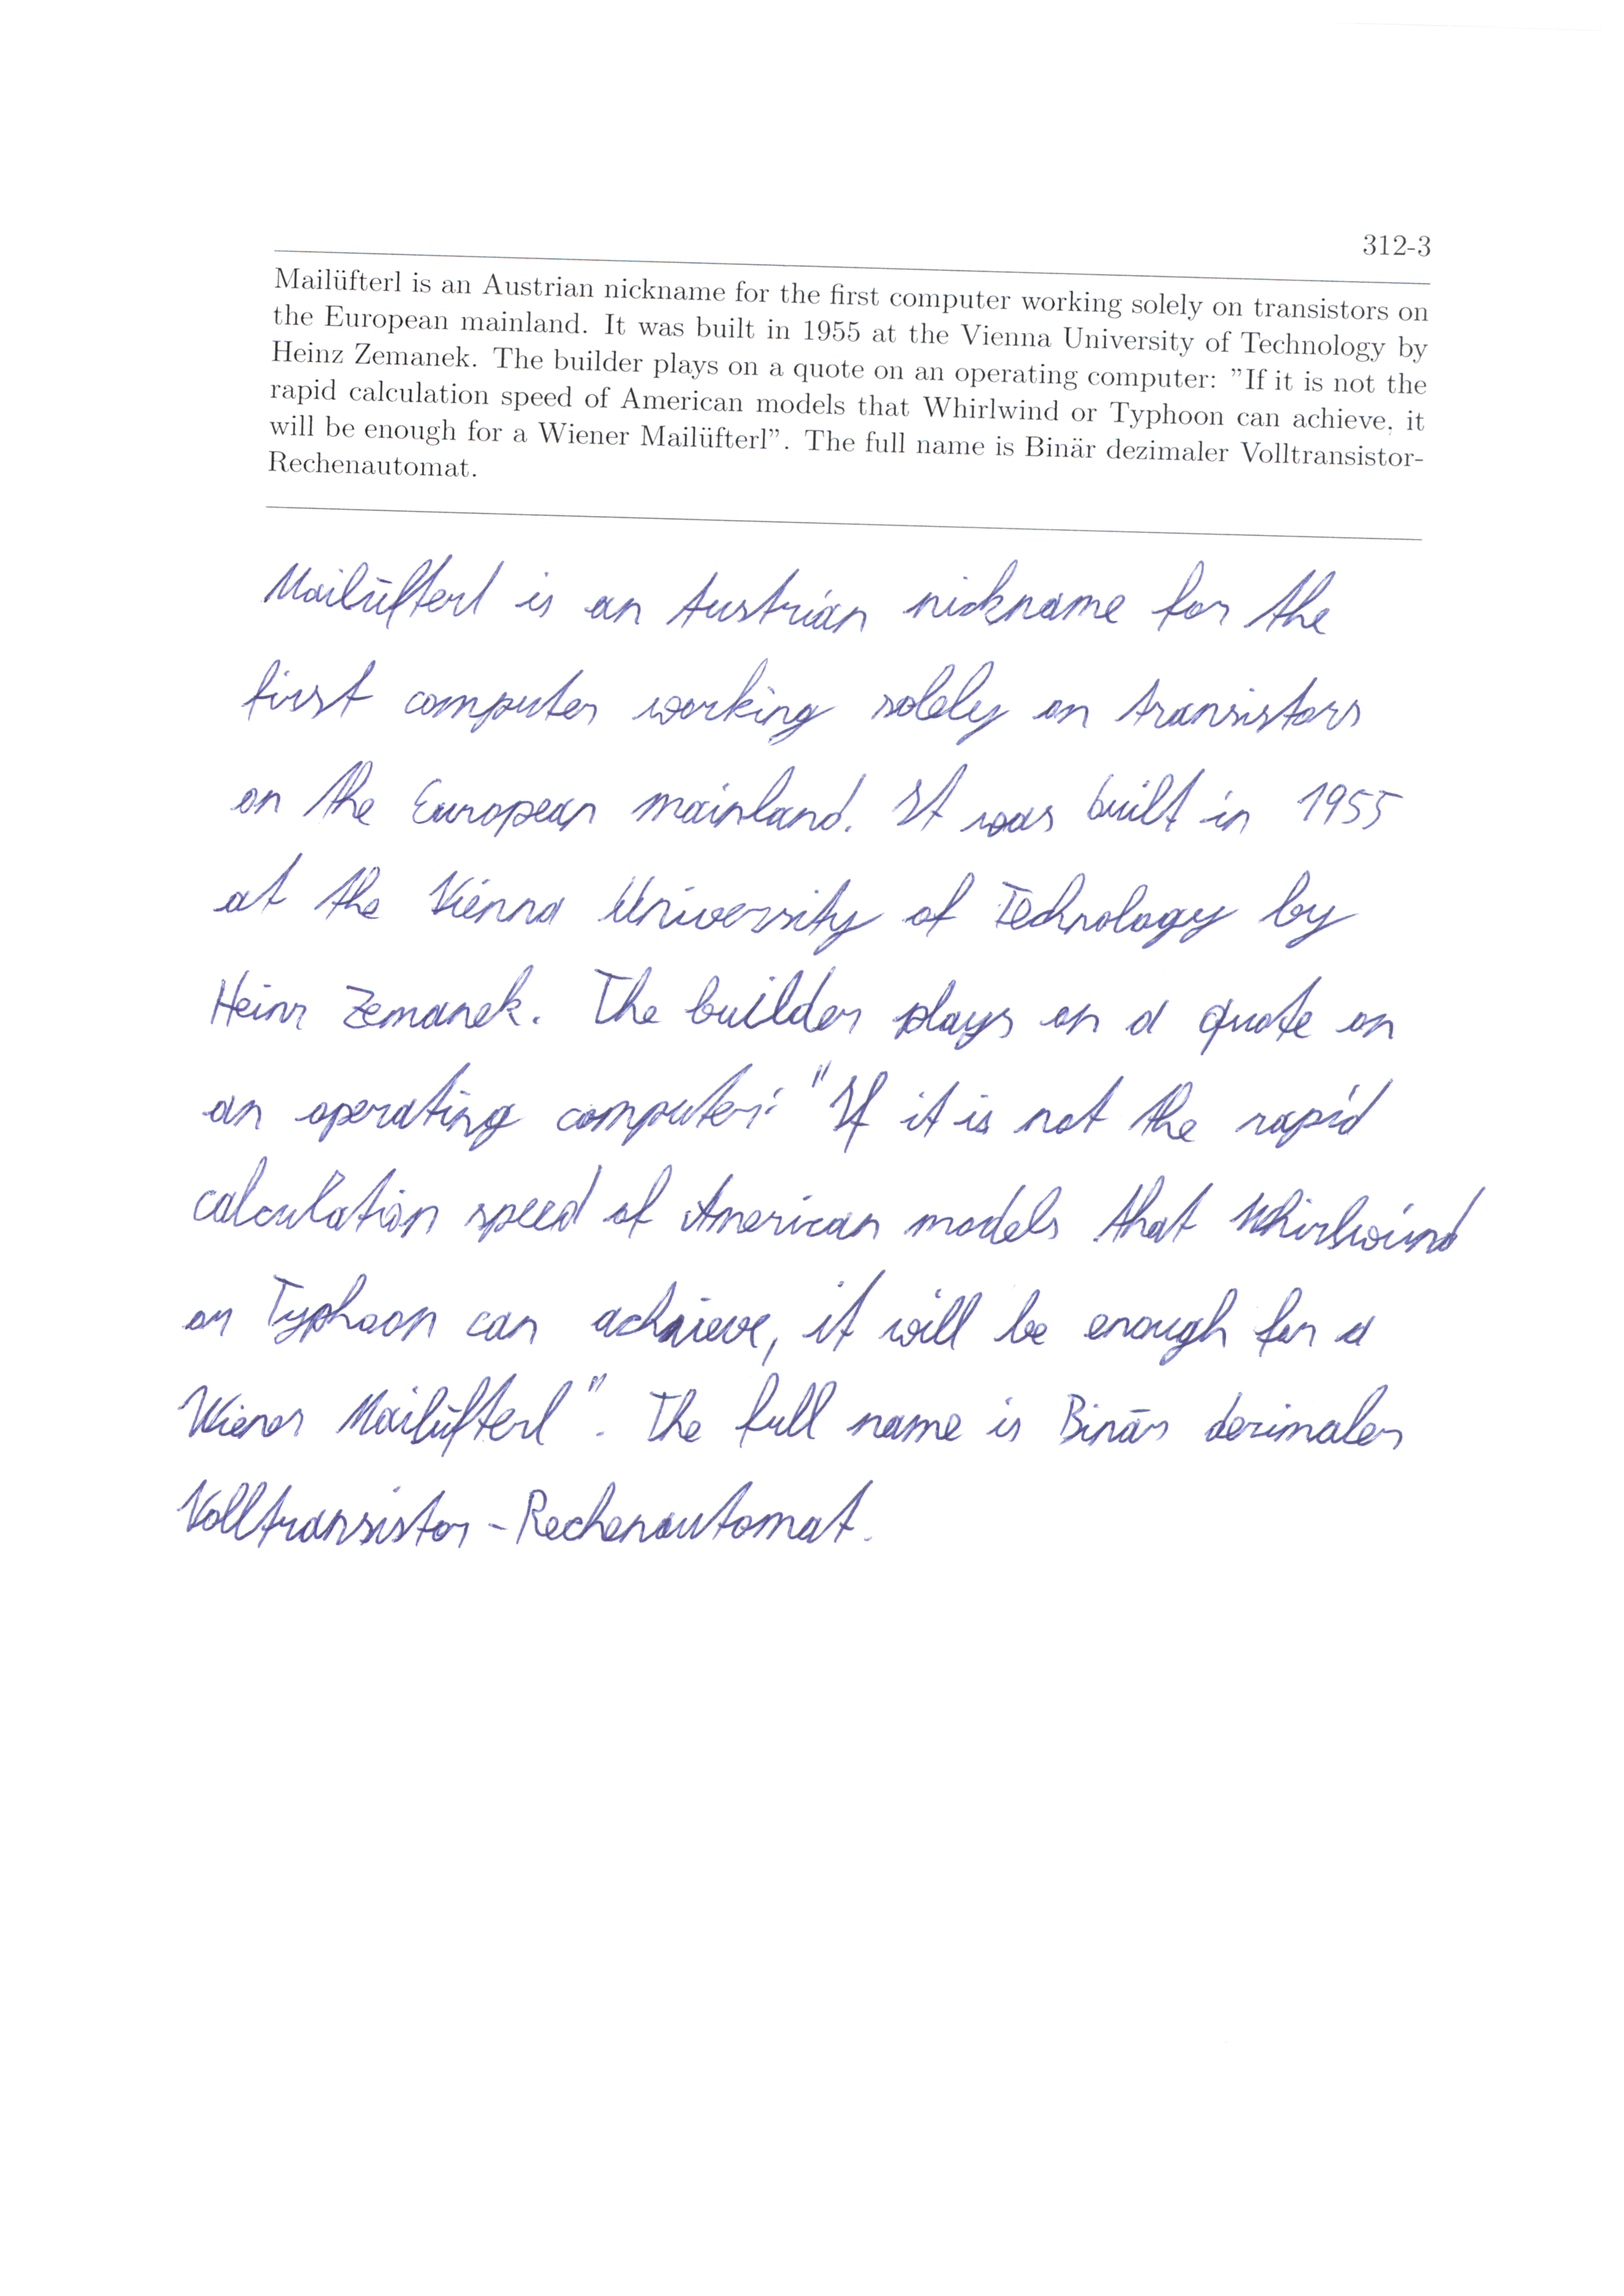 312-3
Mailüfterl is an Austrian nickname for the first computer working solely on transistors on
the European mainland. It was built in 1955 at the Vienna University of Technology by
Heinz Zemanek. The builder plays on a quote on an operating computer: ”If it is not the
rapid calculation speed of American models that Whirlwind or Typhoon can achieve, it
will be enough for a Wiener Mailüfterl”. The full name is Binär dezimaler Volltransistor-
Rechenautomat.
Mailüfterl is an Austrian nickname for the
first computer working solely on transistors
on the European mainland. It was built in 1955
at the Vienna University of Technology by
Heinz Zemanek. The builder plays on a quote on
an operating computer: "If it is not the rapid
calculation speed of American models that Whirlwind
or Typhoon can achieve, it will be enough for a
Wiener Mailüfterl". The full name is Binär dezimaler
Volltransistor-Rechenautomat.